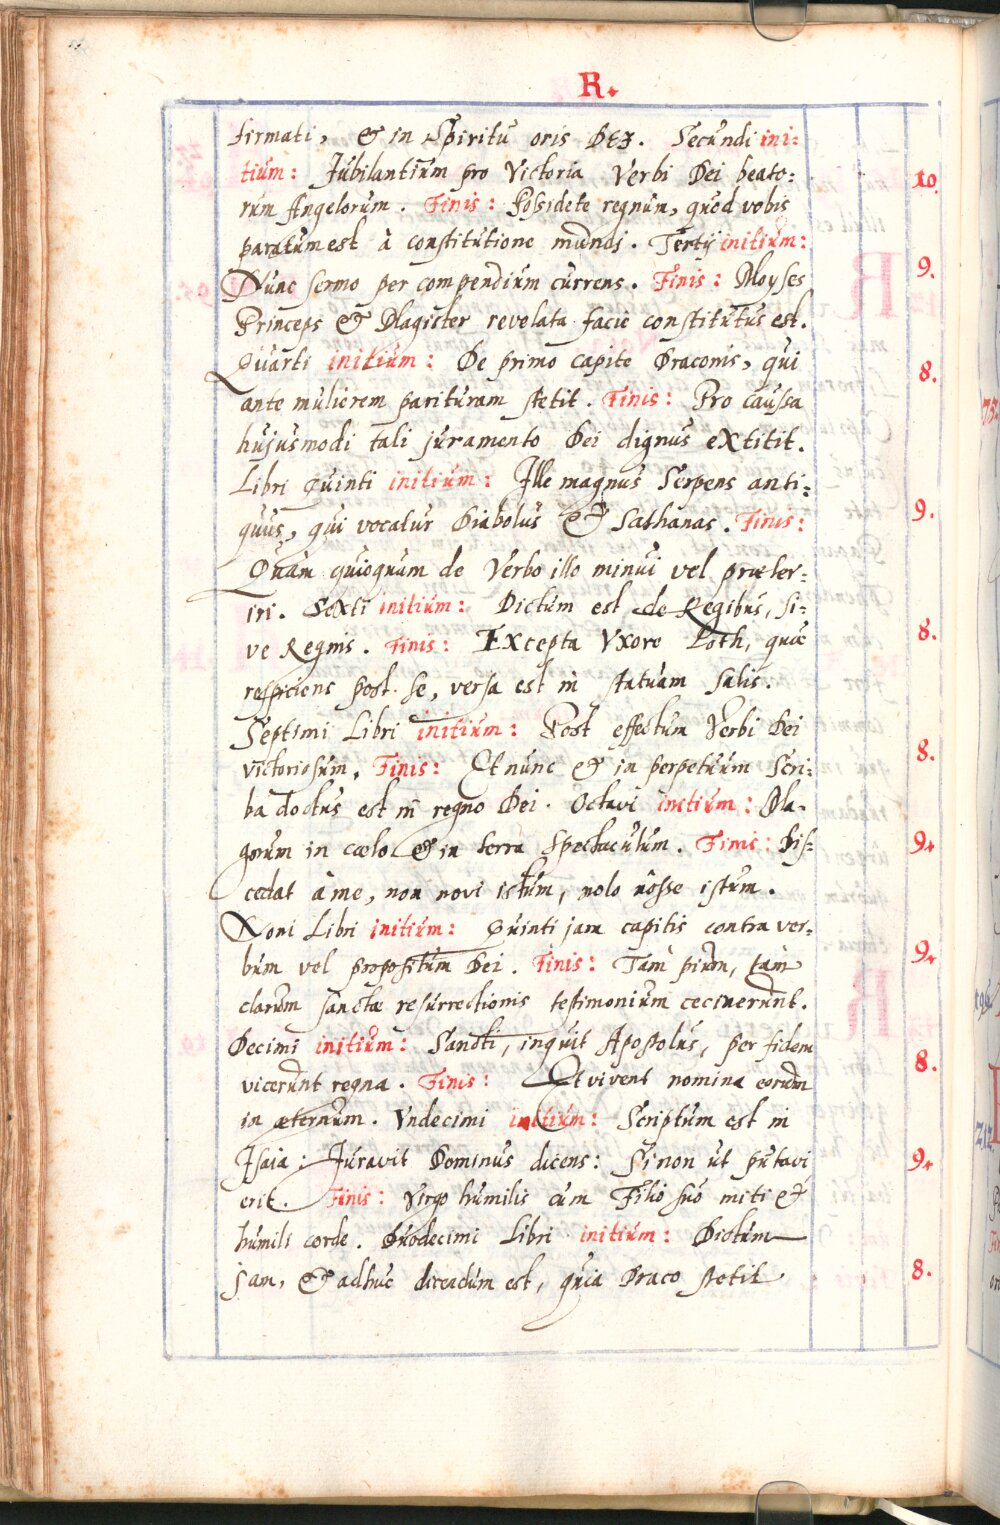 R.
firmati, & in Spiritu oris DEI. Secundi ini:
tium: Jubilantium pro Victoria Verbi Dei beato: 10
rum Angelorum. Finis: Possidete regnum, quod vobis
paratum est à constitutione mundi. Tertij initium:
Nunc sermo per compendium currens. Finis: Moyses 9.
Princeps & Magister revelata facie constitutus est.
Quarti initium: De primo capite Draconis, qui 8.
ante mulierem parituram stetit. Finis: Pro caussa
hujusmodi tali juramento Dei dignus extitit.
Libri Quinti initium: Ille magnus Serpens anti: 9.
quus, qui vocatur Diabolus & Sathanas. Finis:
Quàm quicquam de Verbo illo minui vel præter:
iri. Sexti initium: Dictum est de Regibus, si: 8.
ve Regnis. Finis: Excepta Vxore Loth, quæ
respiciens post se, versa est in statuam salis.
Septimi Libri initium: Post effectum Verbi Dei 8.
victoriosum. Finis: Et nunc & in perpetuum Scri:
ba doctus est in regno Dei. Octavi initium: Ma-
gnum in cœlo & in terra Spectaculum. Finis: Dis: 9.
cedat à me, non novi istum, nolo nosse istum.
Noni Libri initium: Quinti jam capitis contra ver: 9.
bum vel propositum Dei. Finis: Tam pium, tam
clarum sanctæ resurrectionis testimonium cecinerunt.
Decimi initium: Sancti, inquit Apostolus, per fidem 8.
vicerunt regna. Finis: Et vivent nomina eorum
in æternum. Vndecimi initium: Scriptum est in
Isaia: Juravit Dominus dicens: Si non ut putavi 9.
erit. Finis: Virgo humilis cum Filio suo miti &
humili corde. Duodecimi Libri initium: Dictum
jam, & adhuc dicendum est, quia Draco stetit 8.